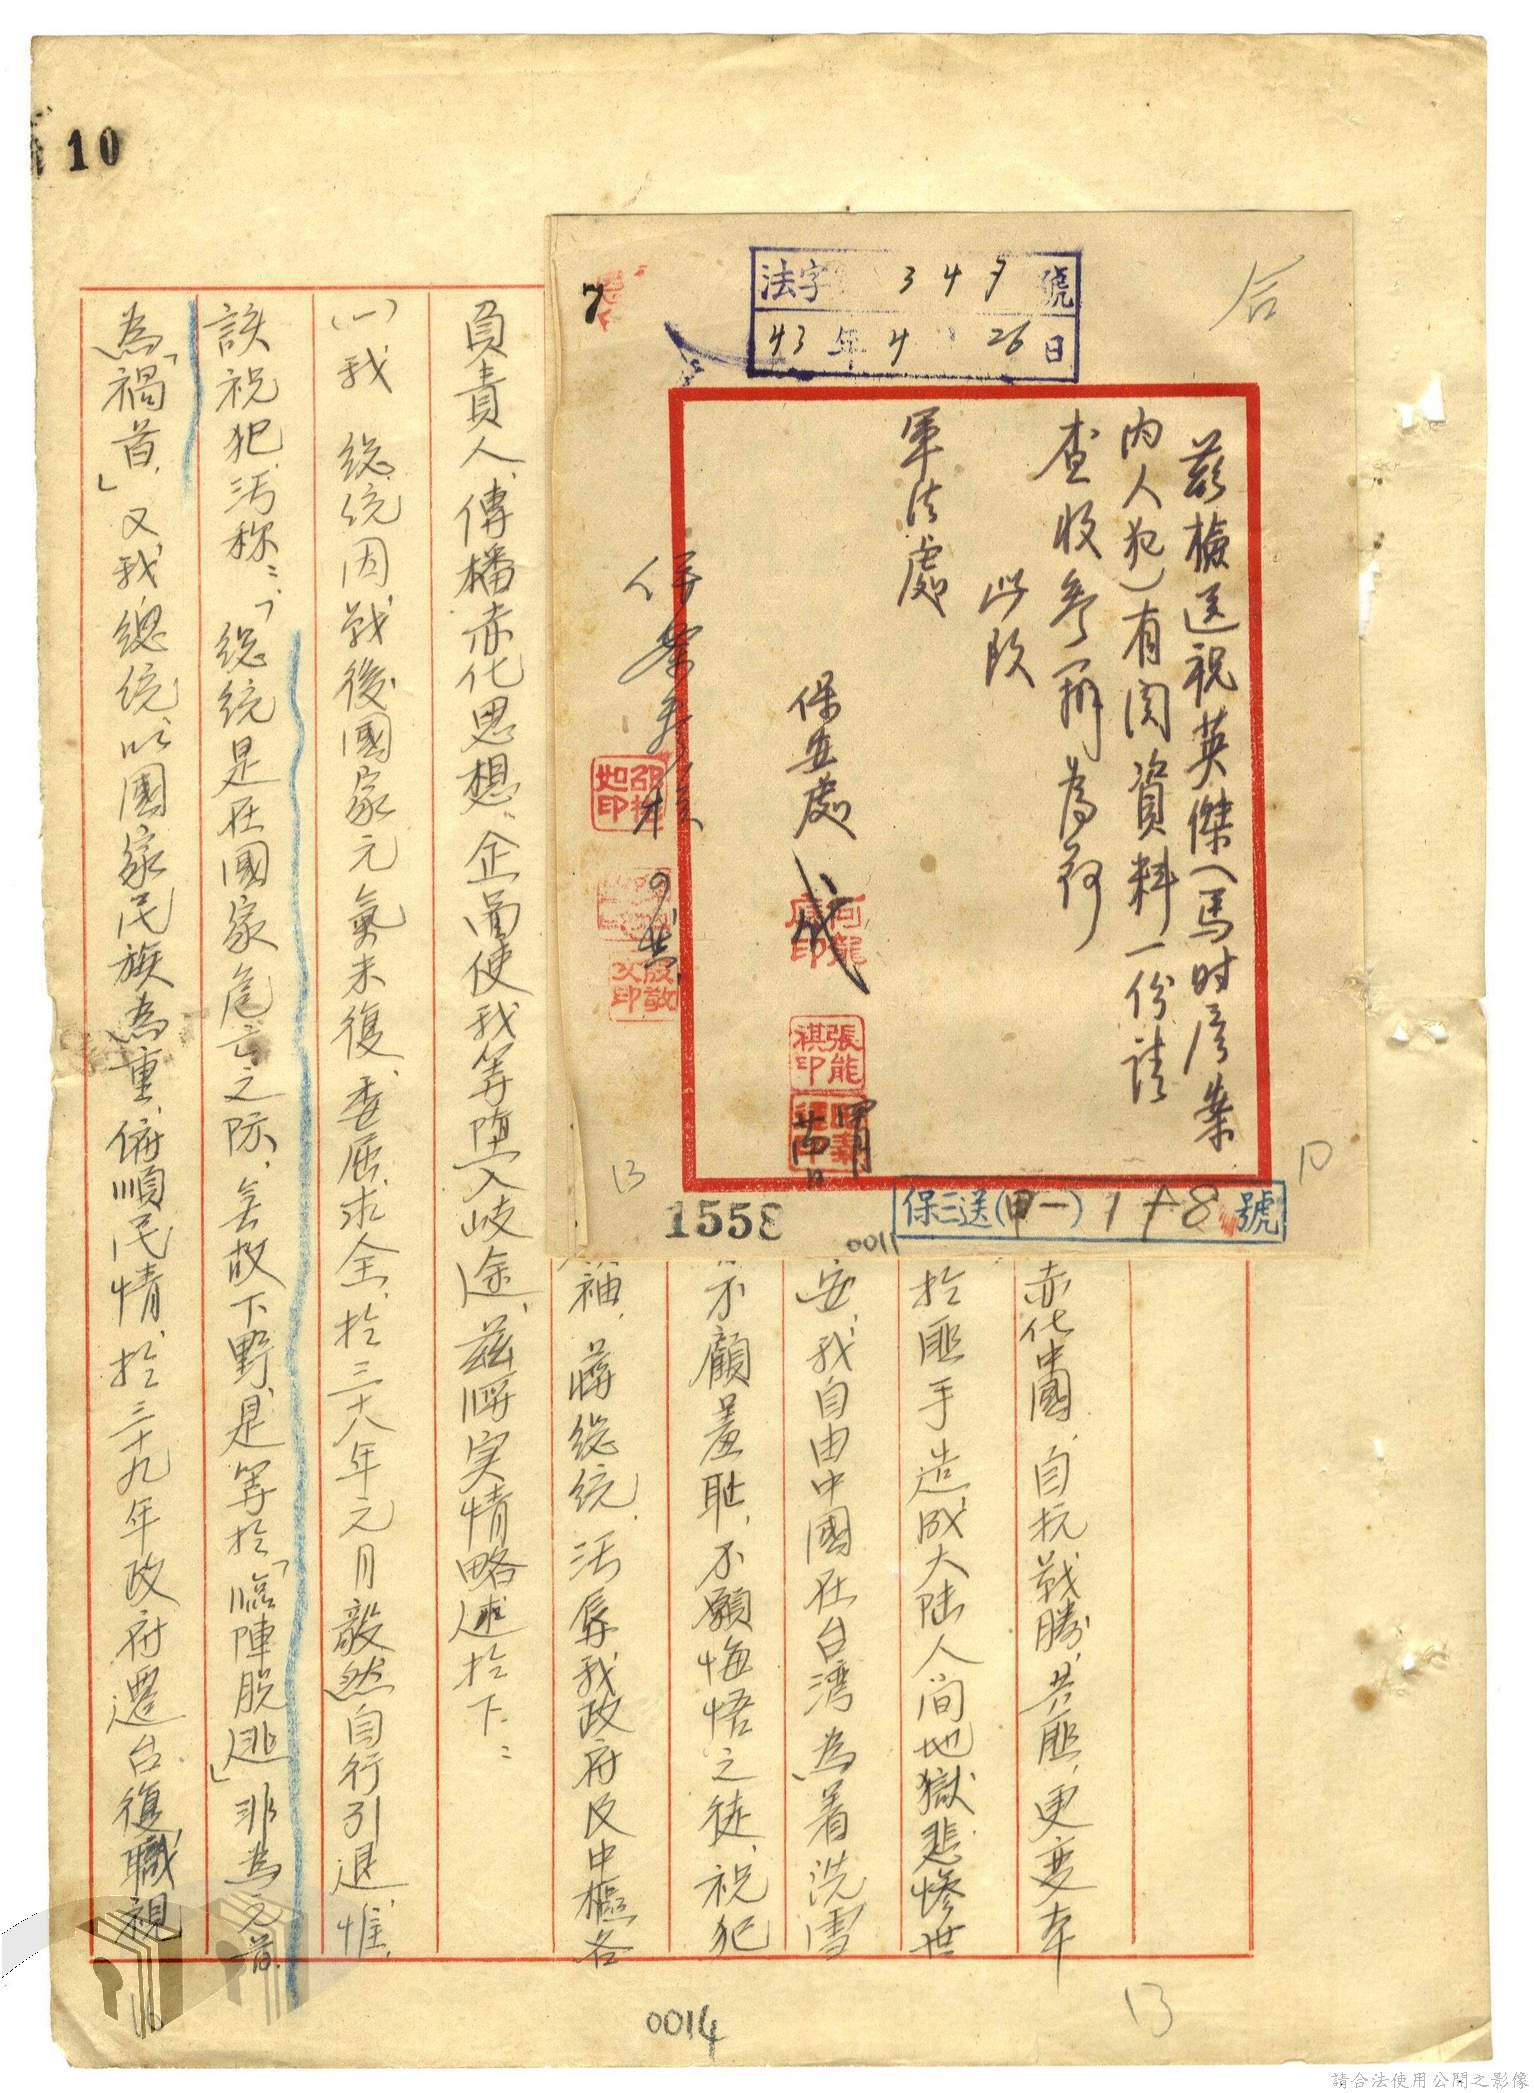 10
7
法字 349 號
43 年 4 26 日
合
茲檢送祝英傑(馬时彥案
內人犯)有関資料一份請
查收參辦為荷
此致
軍法處
保安處
何龍慶印
張能祺印
四月
廿 日
併案
如印
10
13
1558
0011
保三送(甲一)1 8 號
赤化中國,自抗战勝,共匪,更变本
於匪手造成大陆人间地獄悲惨世
安,我自由中國在台湾為着洗雪
不顧羞恥,不願悔悟之徒,祝犯
袖,蔣総統,污辱我政府及中樞各
負責人,傳播赤化思想,企圖使我等堕入歧途,茲將实情略述於下:
(一)我 総統因战後國家元氣未復,委屈求全,於三十八年元月毅然自行引退,惟
該祝犯污称:「総統是在國家危亡之际,去故下野,是等於「臨陣脱逃」非為元首
為「禍首」又我總統以國家民族為重,俯順民情,於三十九年政府遷台復職視
0014
13
請合法使用公開之影像